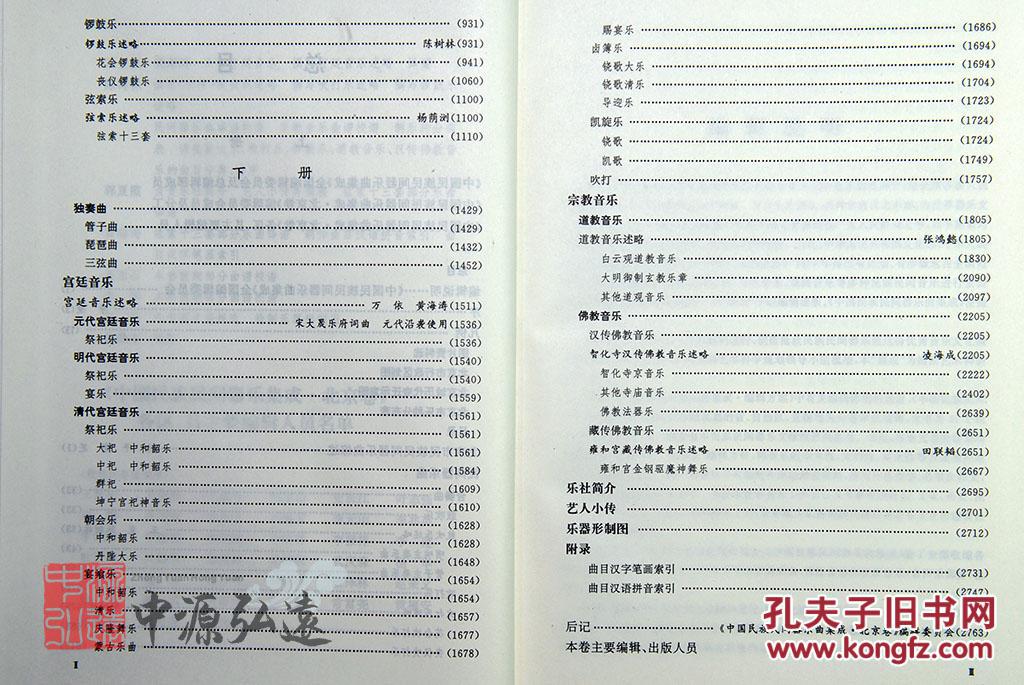 锣鼓乐 (931)
锣鼓乐述略 陈树林(931)
花会锣鼓乐 (941)
丧仪锣鼓乐 (1060)
弦索乐 (1100)
弦索乐述略 杨荫浏(1100)
弦索十三套 (1110)
下 册
独奏曲 (1429)
管子曲 (1429)
琵琶曲 (1432)
三弦曲 (1452)
宫廷音乐
宫廷音乐述略 万 依 黄海涛(1511)
元代宫廷音乐 宋大晟乐府词曲 元代沿袭使用(1536)
祭祀乐 (1536)
明代宫廷音乐 (1540)
祭祀乐 (1540)
宴乐 (1559)
清代宫廷音乐 (1561)
祭祀乐 (1561)
大祀 中和韶乐 (1561)
中祀 中和韶乐 (1584)
群祀 (1609)
坤宁宫祀神音乐 (1610)
朝会乐 (1628)
中和韶乐 (1628)
丹陛大乐 (1648)
宴飨乐 (1654)
中和韶乐 (1654)
清乐 (1657)
庆隆舞乐 (1677)
蒙古乐曲 (1678)
I
赐宴乐 (1686)
卤簿乐 (1694)
铙歌大乐 (1694)
铙歌清乐 (1704)
导迎乐 (1723)
凯旋乐 (1724)
铙歌 (1724)
凯歌 (1749)
吹打 (1757)
宗教音乐
道教音乐 (1805)
道教音乐述略 张鸿懿(1805)
白云观道教音乐 (1830)
大明御制玄教乐章 (2090)
其他道观音乐 (2097)
佛教音乐 (2205)
汉传佛教音乐 (2205)
智化寺汉传佛教音乐述略 凌海成(2205)
智化寺京音乐 (2222)
其他寺庙音乐 (2402)
佛教法器乐 (2639)
藏传佛教音乐 (2651)
雍和宫藏传佛教音乐述略 田联韬(2651)
雍和宫金钢驱魔神舞乐 (2667)
乐社简介 (2695)
艺人小传 (2701)
乐器形制图 (2712)
附录
曲目汉字笔画索引 (2731)
曲目汉语拼音索引 (2747)
后记 《中国民族民间器乐曲集成·北京卷》编辑委员会(2763)
本卷主要编辑、出版人员
II
中源弘远
Zhong Yuan Hong Yuan
中源弘遠
孔夫子旧书网
www.kongfz.com